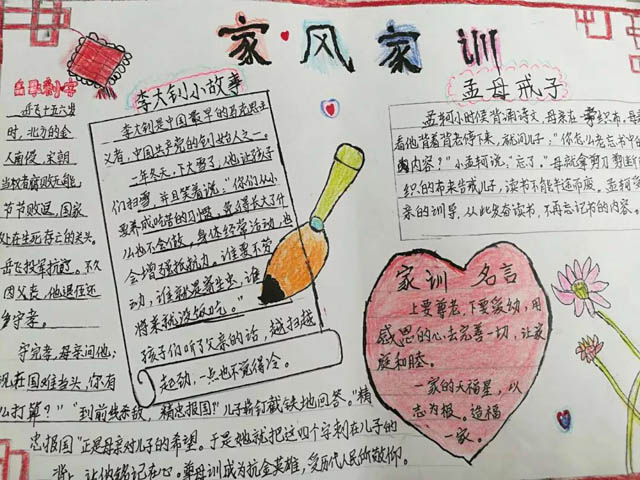 家·风家训
岳母刺字
岳飞十五六岁
时,北方的金
人南侵,宋朝
当权者腐败无能,
节节败退,国家
处在生死存亡的关头。
岳飞投军抗辽。不久
因父丧,他退伍还
乡守孝。
守完孝,母亲问他:
现在国难当头,你有
什么打算?""到前线杀敌,精忠报国!"儿子斩钉截铁地回答。"精
忠报国"正是母亲对儿子的希望。于是她就把这四个字刺在儿子的
背上,让他铭记在心。尊母训成为抗金英雄,受历代人民所敬仰。
李大钊小故事
李大钊是中国最早的马克思主
义者,中国共产党的创始人之一。
一年冬天,下大雪了,他让孩子
们扫雪,并且笑着说:"你们从小
要养成吃苦的习惯,免得长大了什
么也不会做,身体经常活动,也
会增强抵抗力,谁要不劳
动,谁就是寄生虫,谁
将来就没饭吃。"
孩子们听了父亲的话,越扫越
起劲,一点也不觉得冷。
孟母戒子
孟轲小时候背诵诗文,母亲在织布,母
看他背着背着停下来,就问儿子:"你怎么老忘书中的
内容?"小孟轲说:"忘了。"母就拿剪刀剪断
织的布来告戒儿子,读书不能半途而废。孟轲
亲的训导,从此发奋读书,不再忘记书的内容。
家训 名言
上要尊老,下要爱幼,用
感恩的心去完善一切,让家
庭和睦。
一家的天福星,以
志为根。造福
一家。